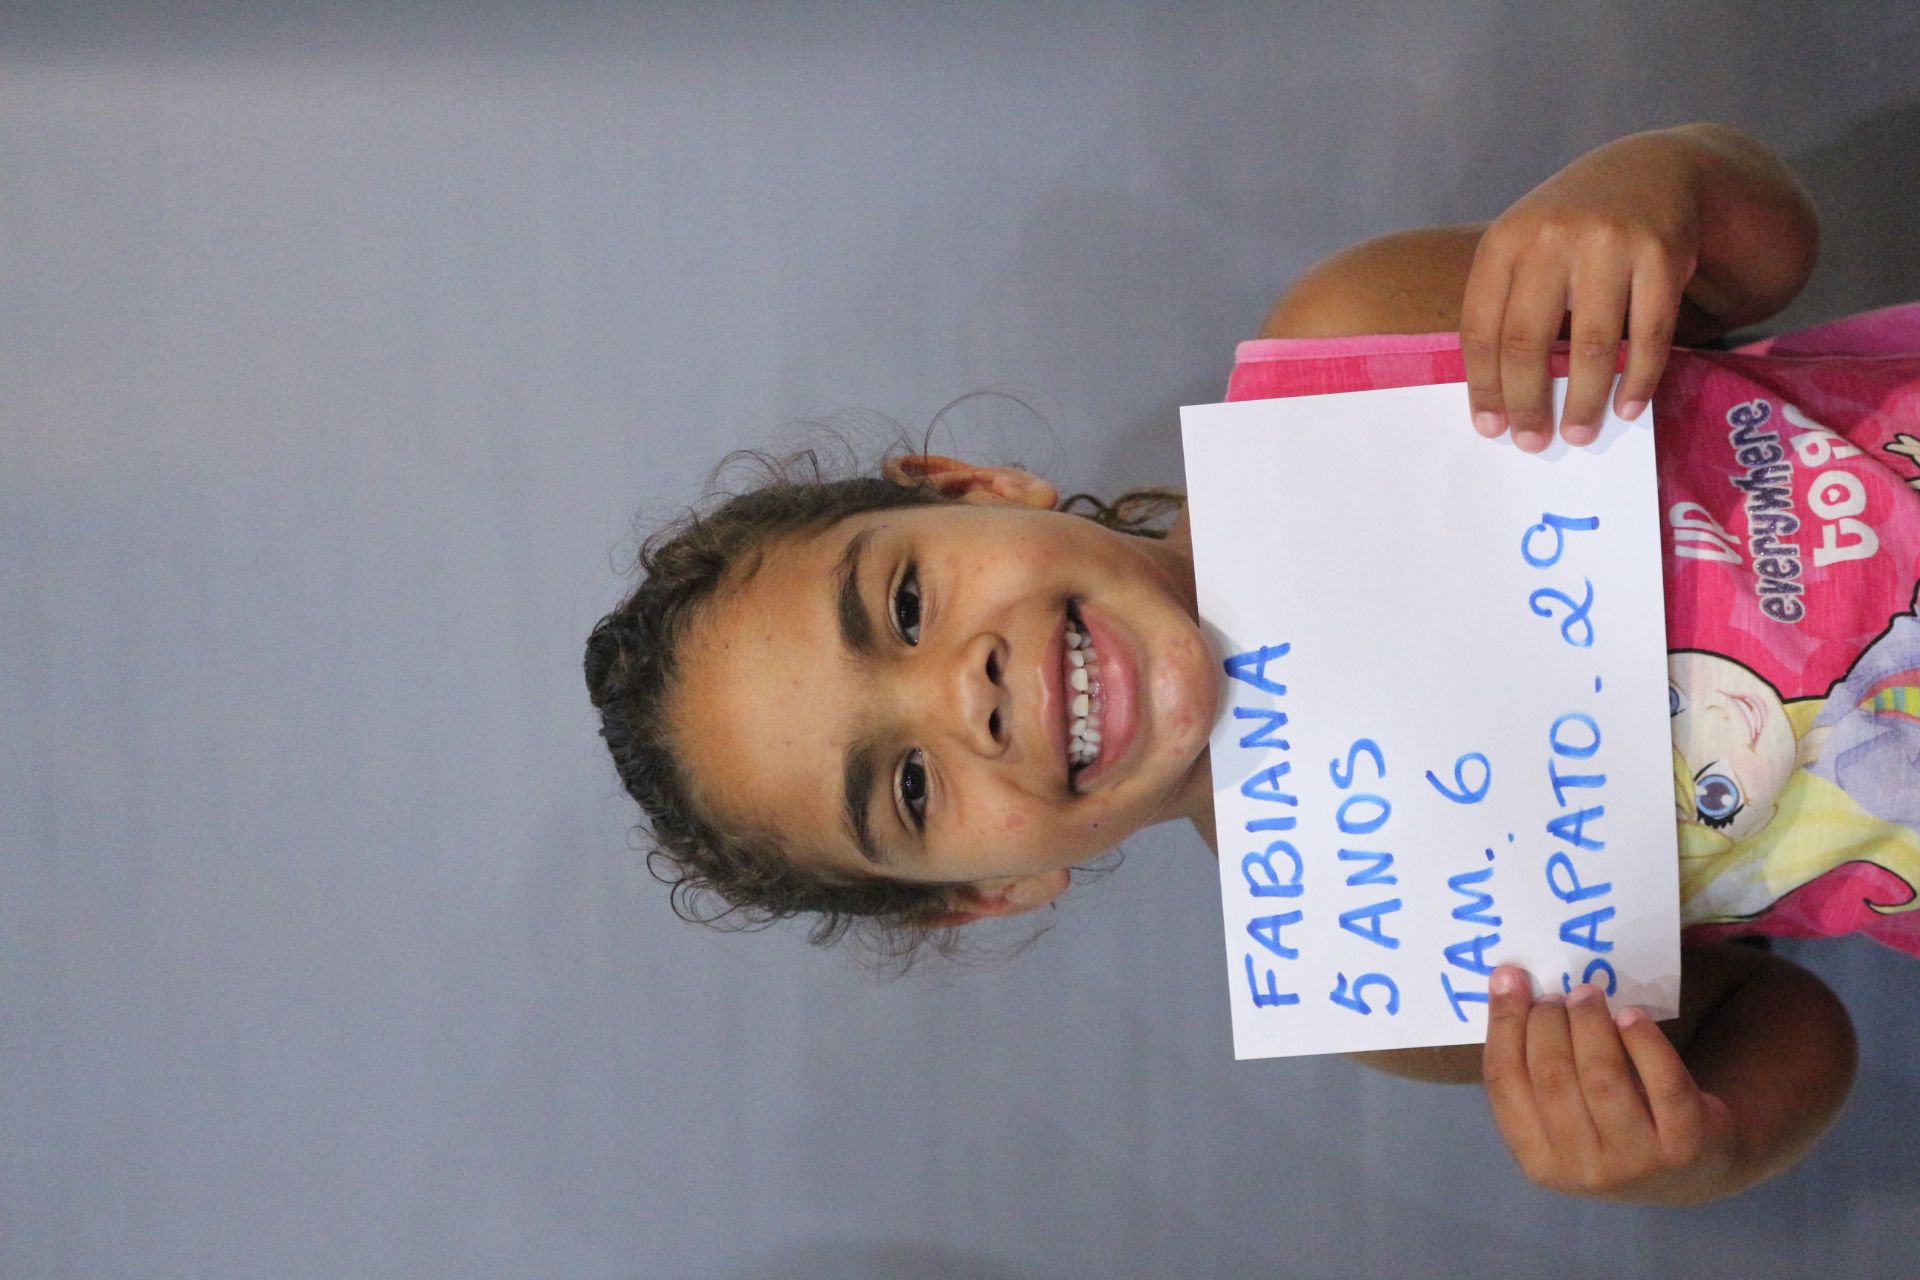 FABIANA
5 ANOS
TAM. 6
SAPATO. 29
UP
everywhere
to